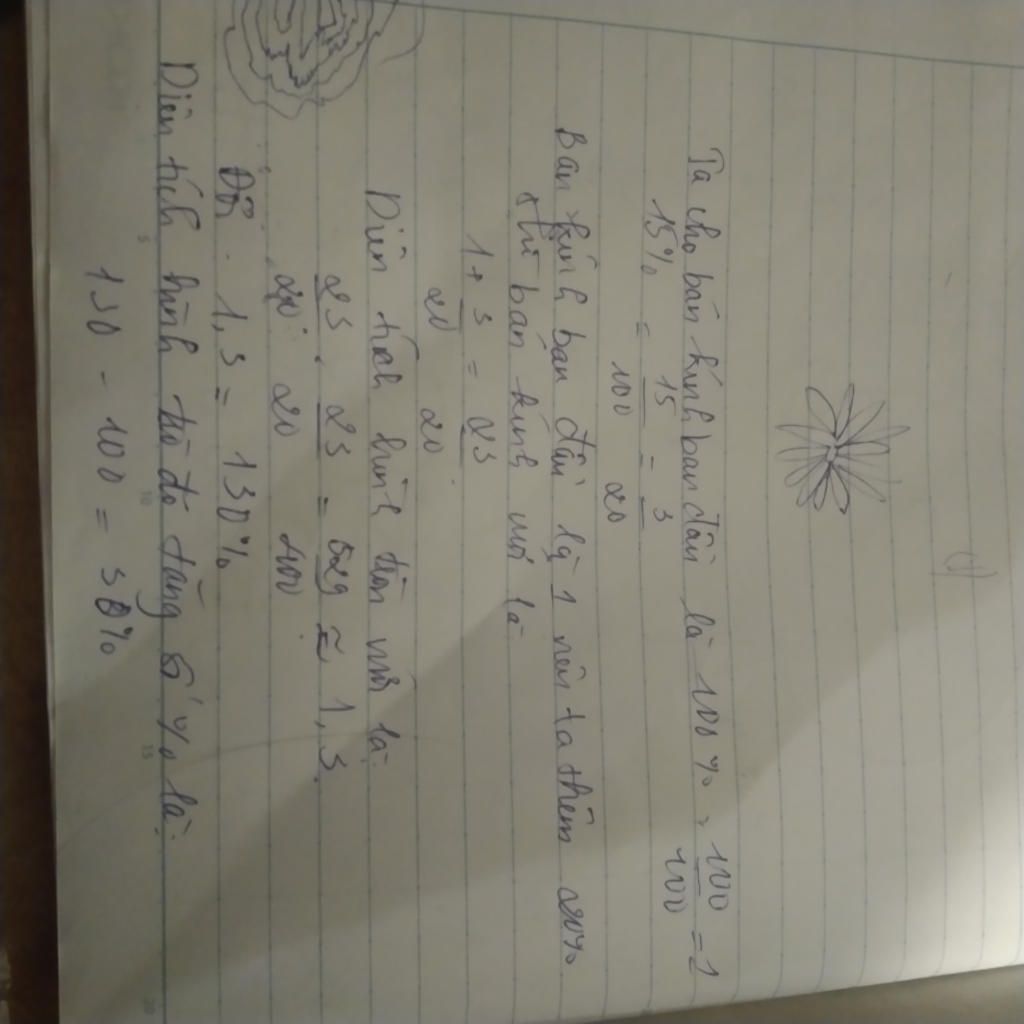 Ta cho bán kính ban đầu là 100% = 100/100 = 1
15% = 15/100 = 3/20
Bán kính ban đầu là 1 nên ta thêm 20%
thì bán kính mới là:
1 + 3/20 = 23/20
Diện tích hình tròn mới là:
23/20 . 23/20 = 529/400 ≈ 1,3
Đổi: 1,3 = 130%
Diện tích hình tròn đó tăng số % là:
130 - 100 = 30%
5
10
15
20